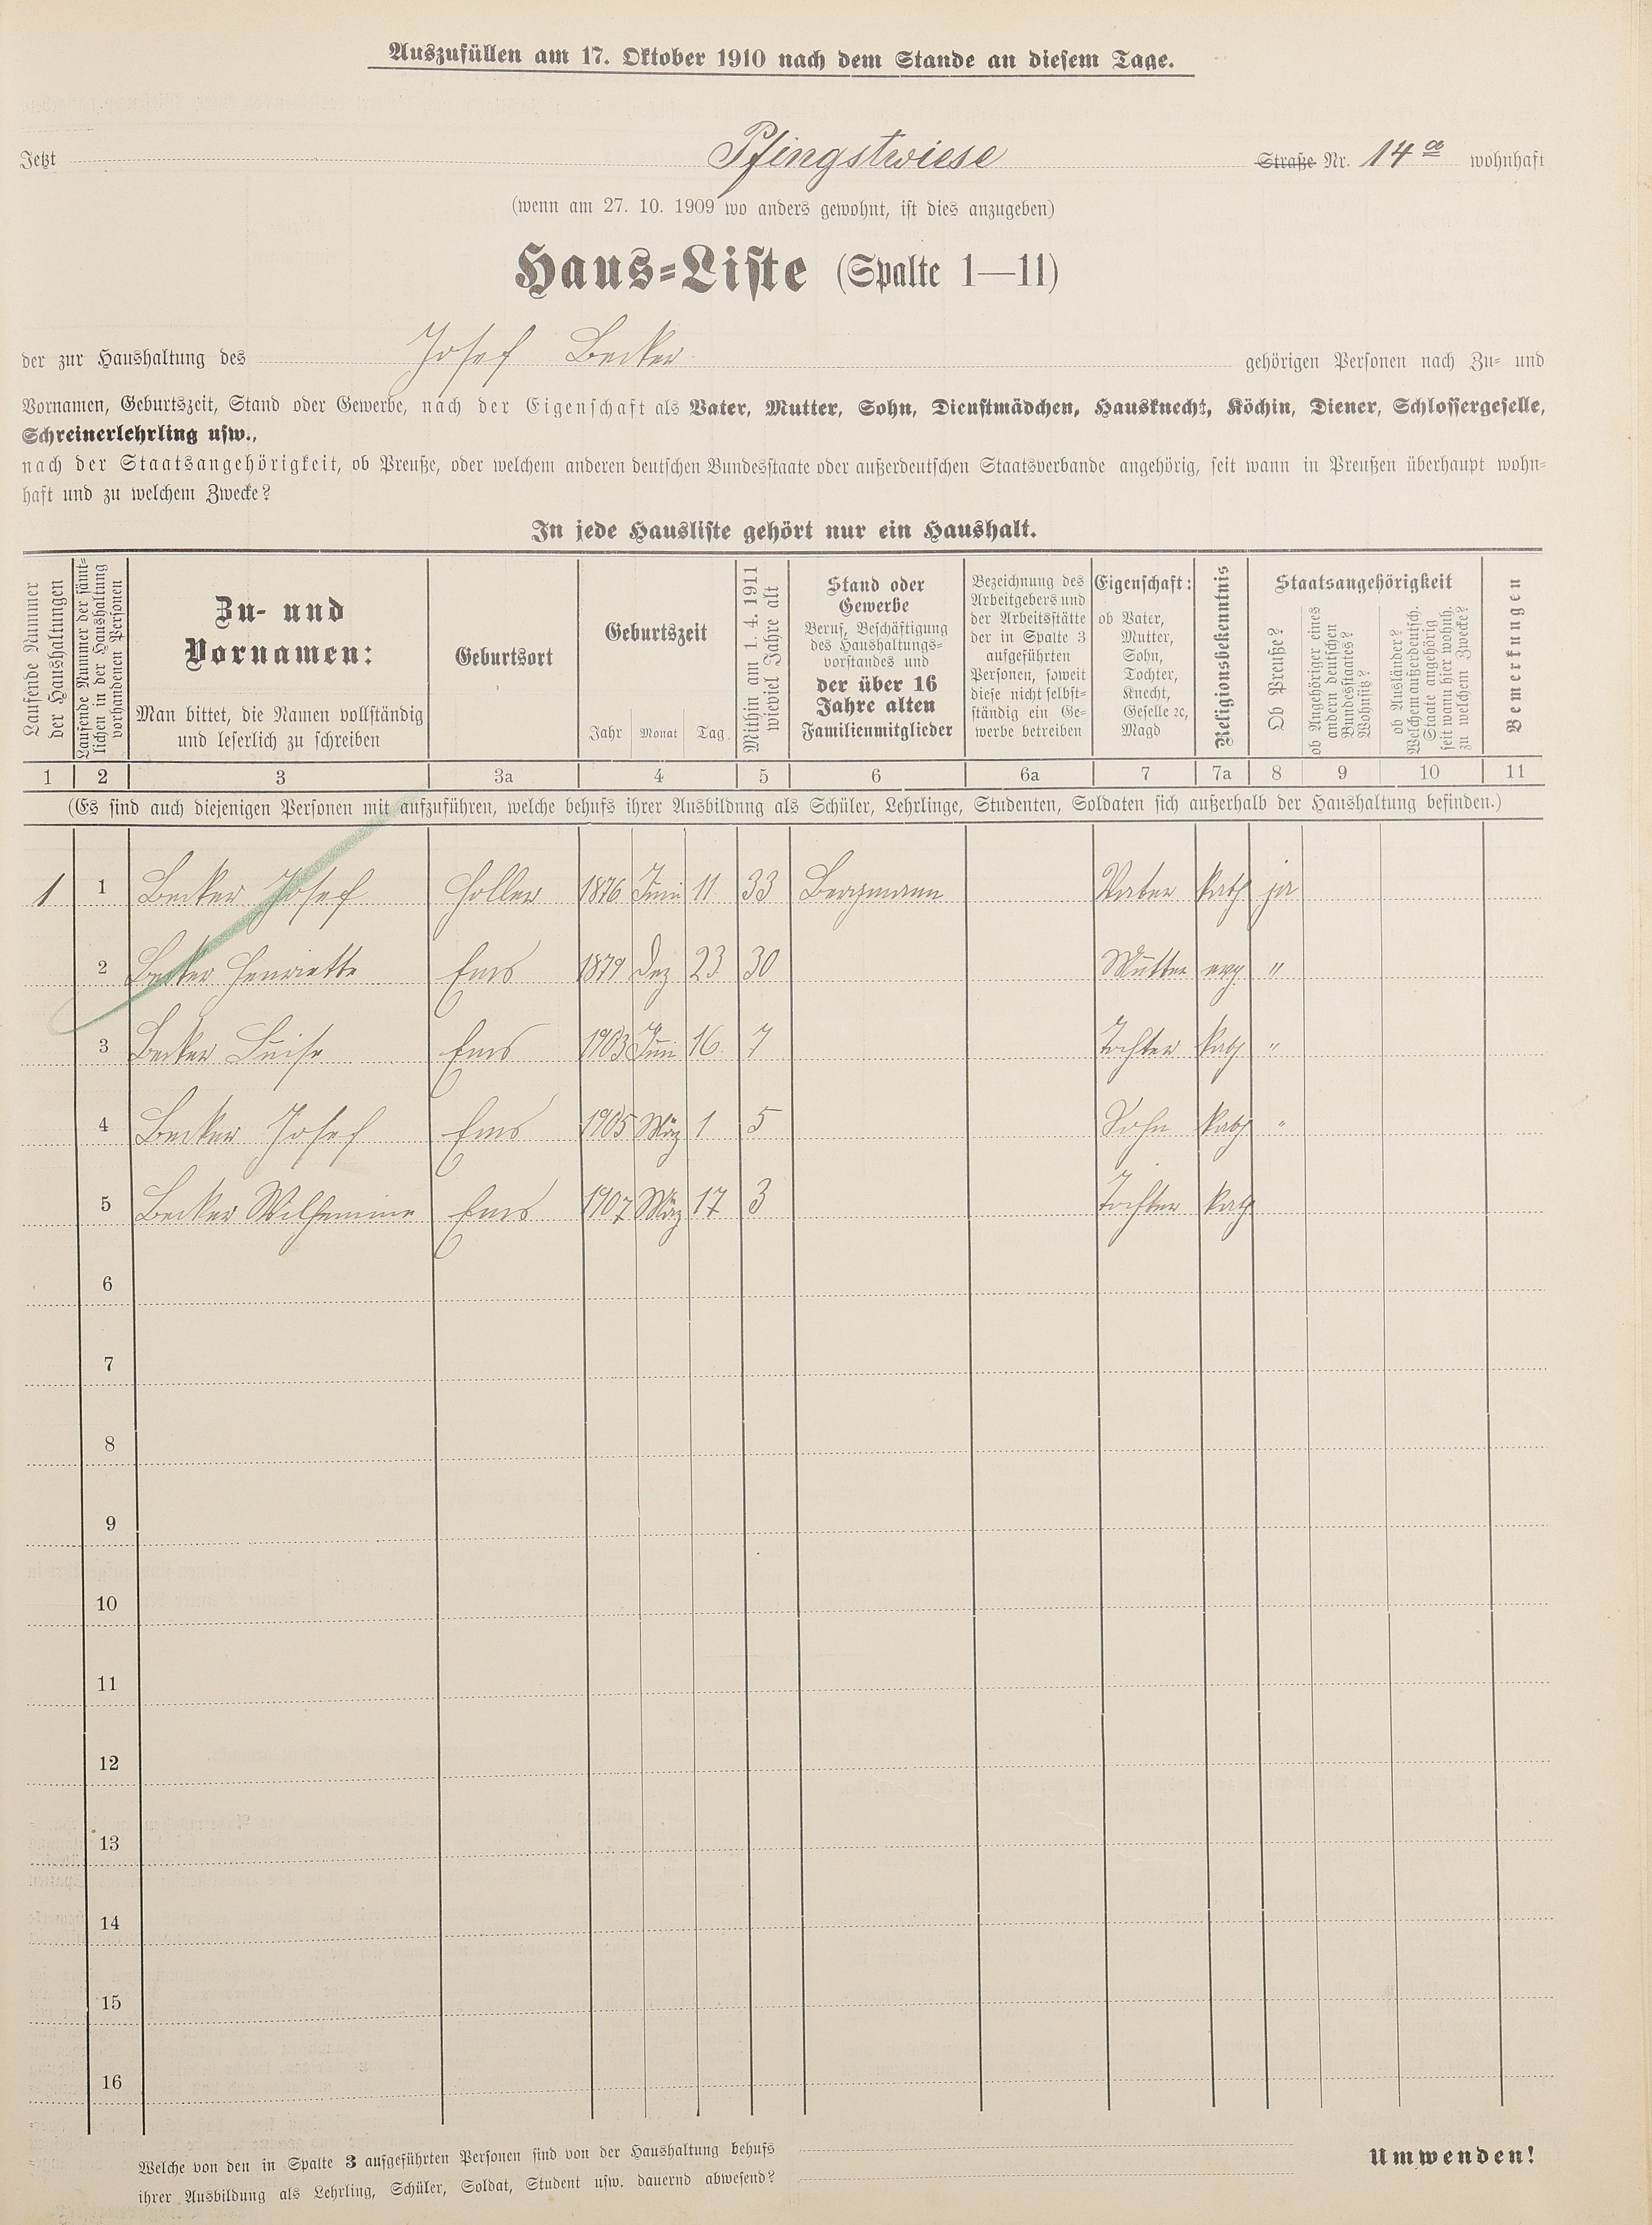 Auszufüllen am 17. Oktober 1910 nach dem Stande an diesem Tage.
Jetzt Pfingstwiese Straße Nr. 14 a wohnhaft
(wenn am 27. 10. 1909 wo anders gewohnt, ist dies anzugeben)
Haus-Liste (Spalte 1—11)
der zur Haushaltung des Josef Becker gehörigen Personen nach Zu- und
Vornamen, Geburtszeit, Stand oder Gewerbe, nach der Eigenschaft als Vater, Mutter, Sohn, Dienstmädchen, Hausknecht, Köchin, Diener, Schlossergeselle,
Schreinerlehrling usw.,
nach der Staatsangehörigkeit, ob Preuße, oder welchem anderen deutschen Bundesstaate oder außerdeutschen Staatsverbande angehörig, seit wann in Preußen überhaupt wohn-
haft und zu welchem Zwecke?
In jede Hausliste gehört nur ein Haushalt.
Laufende Nummer
der Haushaltungen
Laufende Nummer der sämt-
lichen in der Haushaltung
vorhandenen Personen
Zu- und
Vornamen:
Man bittet, die Namen vollständig
und leserlich zu schreiben
Geburtsort
Geburtszeit
Jahr Monat Tag
Mithin am 1. 4. 1911
wieviel Jahre alt
Stand oder
Gewerbe
Beruf, Beschäftigung
des Haushaltungs-
vorstandes und
der über 16
Jahre alten
Familienmitglieder
Bezeichnung des
Arbeitgebers und
der Arbeitsstätte
der in Spalte 3
aufgeführten
Personen, soweit
diese nicht selbst-
ständig ein Ge-
werbe betreiben
Eigenschaft:
ob Vater,
Mutter,
Sohn,
Tochter,
Knecht,
Geselle ꝛc,
Magd
Religionsbekenntnis
Staatsangehörigkeit
Ob Preuße?
ob Angehöriger eines
andern deutschen
Bundesstaates?
Wohnsitz?
ob Ausländer?
Welchem außerdeutsch.
Staate angehörig
seit wann hier wohnh.
zu welchem Zwecke?
Bemerkungen
1 2 3 3a 4 5 6 6a 7 7a 8 9 10 11
(Es sind auch diejenigen Personen mit aufzuführen, welche behufs ihrer Ausbildung als Schüler, Lehrlinge, Studenten, Soldaten sich außerhalb der Haushaltung befinden.)
1 1 Becker Josef Holler 1876 Juni 11 33 Bergmann Vater kath ja
2 Becker Henriette Ems 1879 Dez 23 30 Mutter evg. "
3 Becker Luise Ems 1903 Jun 16 7 Tochter kath "
4 Becker Josef Ems 1905 März 1 5 Sohn kath "
5 Becker Wilhemine Ems 1907 März 17 3 Tochter kath
6
7
8
9
10
11
12
13
14
15
16
Welche von den in Spalte 3 aufgeführten Personen sind von der Haushaltung behufs
ihrer Ausbildung als Lehrling, Schüler, Soldat, Student usw. dauernd abwesend?
Umwenden!